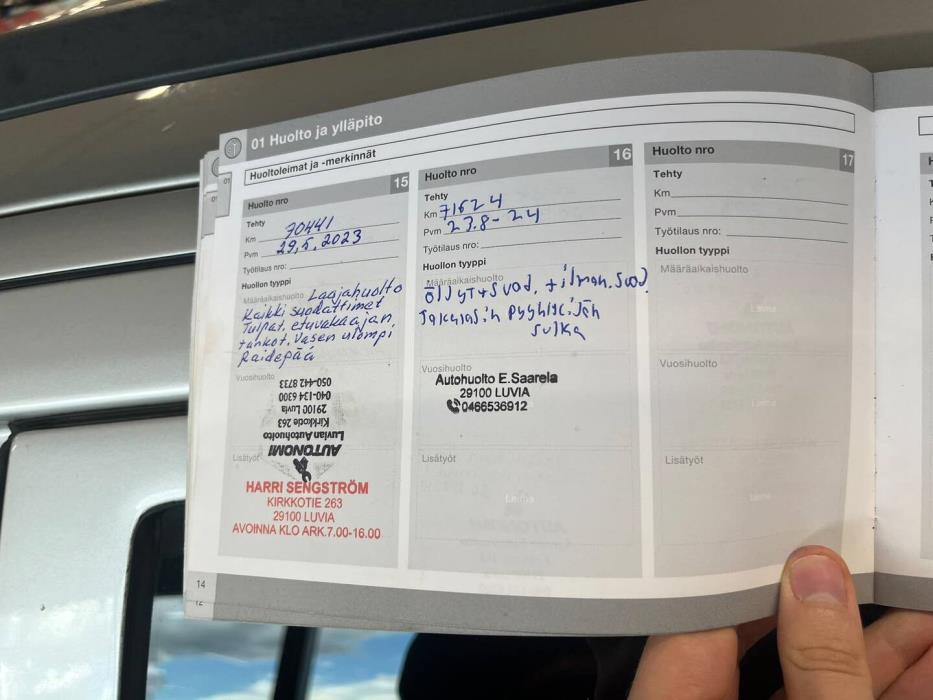 01 Huolto ja ylläpito
Huoltoleimat ja -merkinnät
Huolto nro 15
Tehty
Km 70441
Pvm 29,5,2023
Työtilaus nro:
Huollon tyyppi
Määräaikaishuolto Laajahuolto
Kaikki suodattimet
Tulpat, etuvakaajan
tankot. Vasen ulompi
Raidepää
Vuosihuolto
AUTONOMI
Luvian Autohuolto
Kirkkotie 263
29100 Luvia
040-134 6300
050-442 8733
Lisätyöt
HARRI SENGSTRÖM
KIRKKOTIE 263
29100 LUVIA
AVOINNA KLO ARK.7.00-16.00
Huolto nro 16
Tehty
Km 71624
Pvm 23.8-24
Työtilaus nro:
Huollon tyyppi
Määräaikaishuolto
öllyT+Suod. +ilman.Suod.
Takalasin pyyhkijän
sulka
Vuosihuolto
Autohuolto E.Saarela
29100 LUVIA
0466536912
Lisätyöt
Leima
Huolto nro 17
Tehty
Km
Pvm
Työtilaus nro:
Huollon tyyppi
Määräaikaishuolto
Leima
Vuosihuolto
Leima
Lisätyöt
Leima
14
12